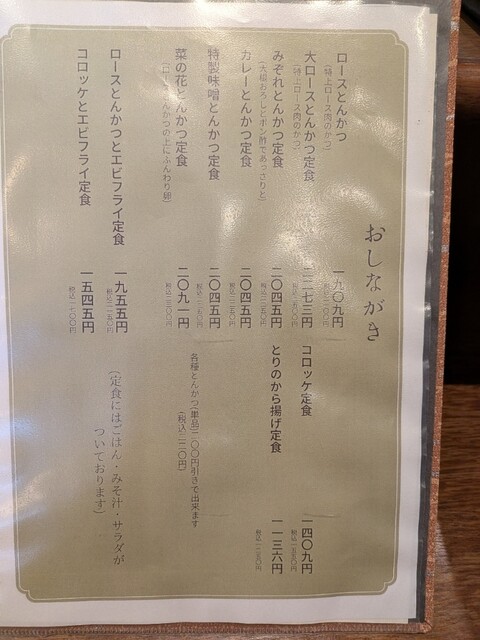 おしながき
ロースとんかつ
(特上ロース肉のかつ)
一九〇九円
税込二一〇〇円
大ロースとんかつ定食
(特上ロース肉のかつ)
二二七三円
税込二五〇〇円
みぞれとんかつ定食
(大根おろしとポン酢であっさりと)
二〇四五円
税込二二五〇円
カレーとんかつ定食
二〇四五円
税込二二五〇円
特製味噌とんかつ定食
二〇四五円
税込二二五〇円
菜の花とんかつ定食
(ロースとんかつの上にふんわり卵)
二〇九一円
税込二三〇〇円
ロースとんかつとエビフライ定食
一九五五円
税込二一五〇円
コロッケとエビフライ定食
一五四五円
税込一七〇〇円
コロッケ定食
一四〇九円
税込一五五〇円
とりのから揚げ定食
一一三六円
税込一二五〇円
各種とんかつ単品二〇〇円引きで出来ます
(税込二二〇円)
(定食にはごはん・みそ汁・サラダが
ついております)